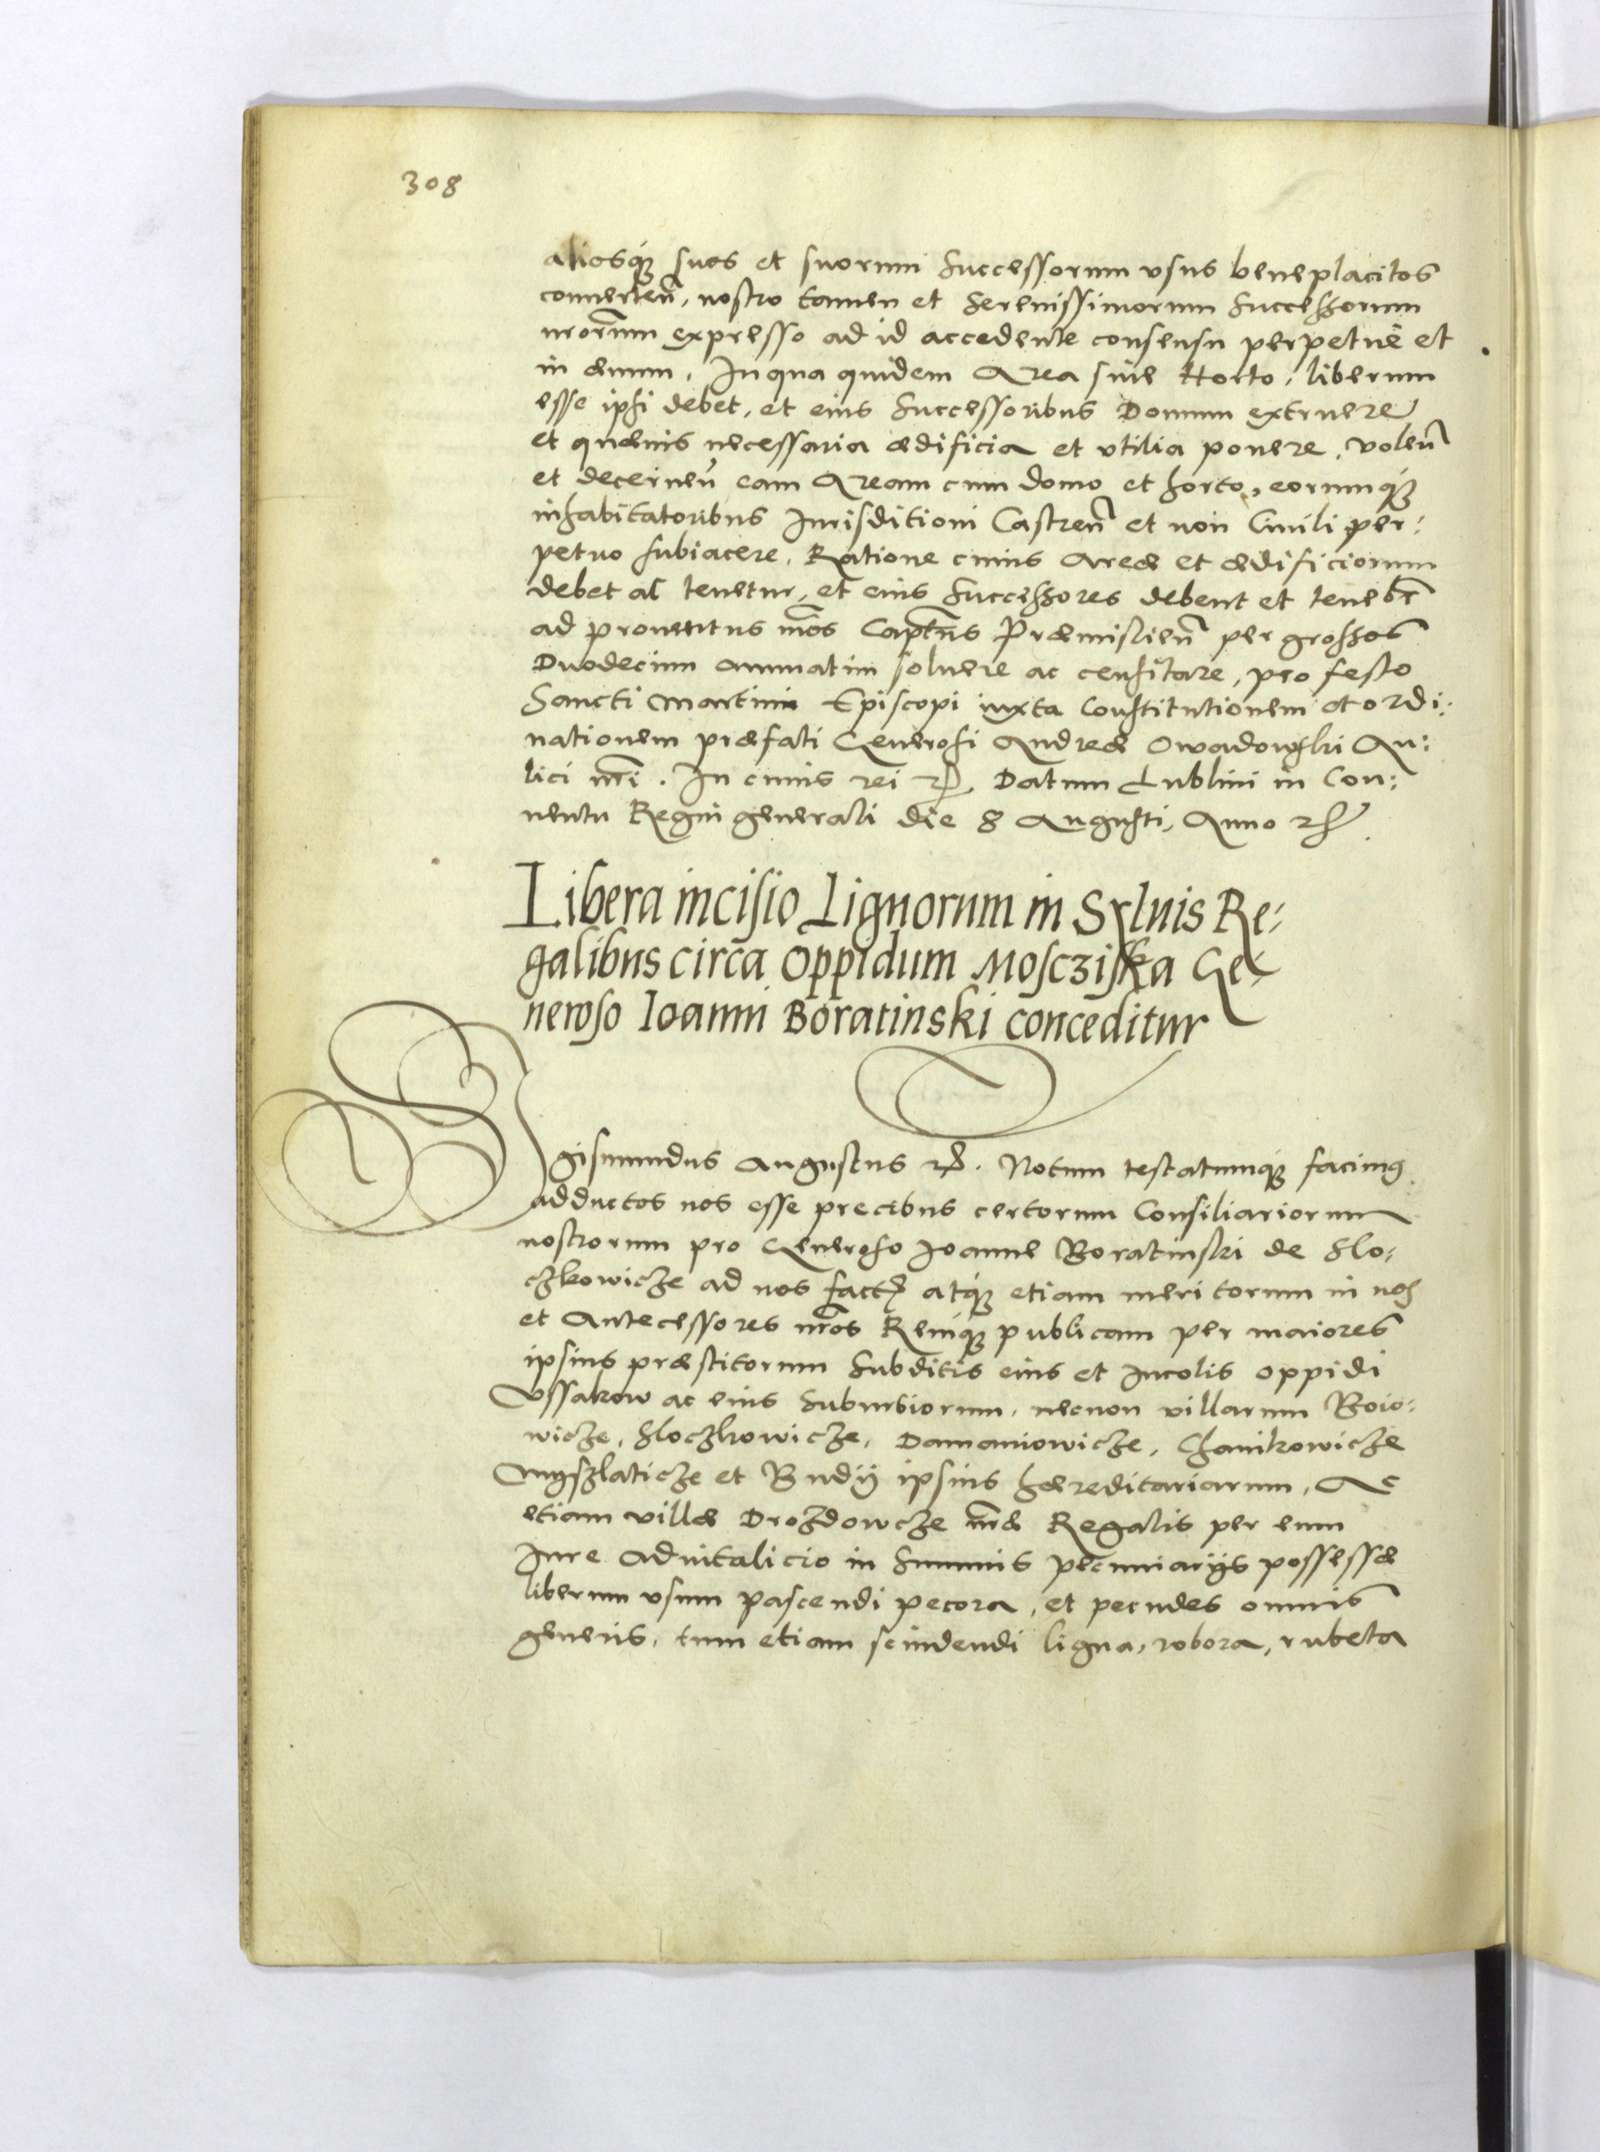 308
aliosq́ue suos et suorum Successorum vsus beneplacitos
conuerteñ, nostro tamen et Serenissimorum Successorum
nrorum expresso ad id accedente consensu perpetuè et
in æuum. In qua quidem Area siue Horto, liberum
esse ipsi debet, et eius Successoribus Domum extruere
et quæuis necessaria ædificia et vtilia ponere, voleñ
et decerneñ eam Aream cum domo et horto, eorumq́ue
inhabitatoribus Jurisditioni Castreñ et non Ciuili per:
petuo subiacere. Ratione cuius Areæ et ædificiorum
debet ac tenetur, et eius Successores debent et teneb̃r
ad prouentus nr̃os Capt̃us Præmislieñ per grossos
Duodecim annuatim soluere ac censitare, pro festo
Sancti Martini Episcopi iuxta Constitutionem et ordi:
nationem præfati Generosi Andreæ Owadowski Au:
lici nr̃i. In cuius rei etc. Datum Lublini in Con:
uentu Regni generali die 8 Augusti, Anno etc.
Libera incisio Lignorum in Syluis Re:
galibus circa Oppidum Mosczis̄ka Ge:
neroso Ioanni Boratinski conceditur
Sigismundus Augustus etc. Notum testatumq́ue facimus
adductos nos esse precibus certorum Consiliariorum
nostrorum pro Generoso Joanne Boratinski de Slo:
czkowicze ad nos fact' atq́ue etiam meritorum in nos
et Antecessores nr̃os Remq́ue publicam per maiores
ipsius præstitorum Subditis eius et Incolis oppidi
Vssakow ac eius Suburbiorum, necnon villarum Boio:
wicze, Sloczkowicze, Damaniowicze, Chanikowicze
Myszlaticze et Budÿ ipsius hæreditariarum, Ac
etiam villæ Drozdowcze nr̃æ Regalis per eum
Iure Aduitalicio in Summis pecuniarijs possessæ
liberum vsum pascendi pecora, et pecudes omnis
generis, tum etiam scindendi ligna, robora, rubeta